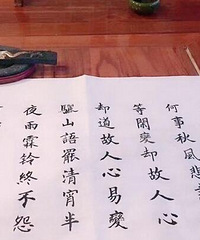 何事秋風悲
等閑變却故人心
却道故人心易變
驪山語罷清宵半
夜雨霖鈴終不怨